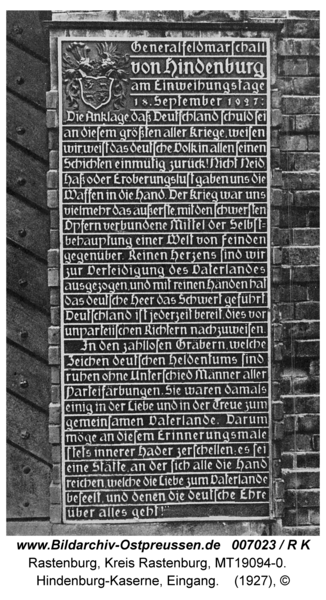 Generalfeldmarschall
von Hindenburg
am Einweihungstage
18. September 1927:
Die Anklage, daß Deutschland schuld sei
an diesem größten aller Kriege, weisen
wir, weist das deutsche Volk in allen seinen
Schichten einmütig zurück! Nicht Neid,
Haß oder Eroberungslust gaben uns die
Waffen in die Hand. Der Krieg war uns
vielmehr das äußerste, mit den schwersten
Opfern verbundene Mittel der Selbst-
behauptung einer Welt von Feinden
gegenüber. Reinen Herzens sind wir
zur Verteidigung des Vaterlandes
ausgezogen, und mit reinen Händen hat
das deutsche Heer das Schwert geführt.
Deutschland ist jederzeit bereit dies vor
unparteiischen Richtern nachzuweisen.
In den zahllosen Gräbern, welche
Zeichen deutschen Heldentums sind
ruhen ohne Unterschied Männer aller
Parteifärbungen. Sie waren damals
einig in der Liebe und in der Treue zum
gemeinsamen Vaterlande. Darum
möge an diesem Erinnerungsmale
stets innerer Hader zerschellen; es sei
eine Stätte, an der sich alle die Hand
reichen, welche die Liebe zum Vaterlande
beseelt, und denen die deutsche Ehre
über alles geht!
www.Bildarchiv-Ostpreussen.de 007023 / R K
Rastenburg, Kreis Rastenburg, MT19094-0.
Hindenburg-Kaserne, Eingang. (1927), ©